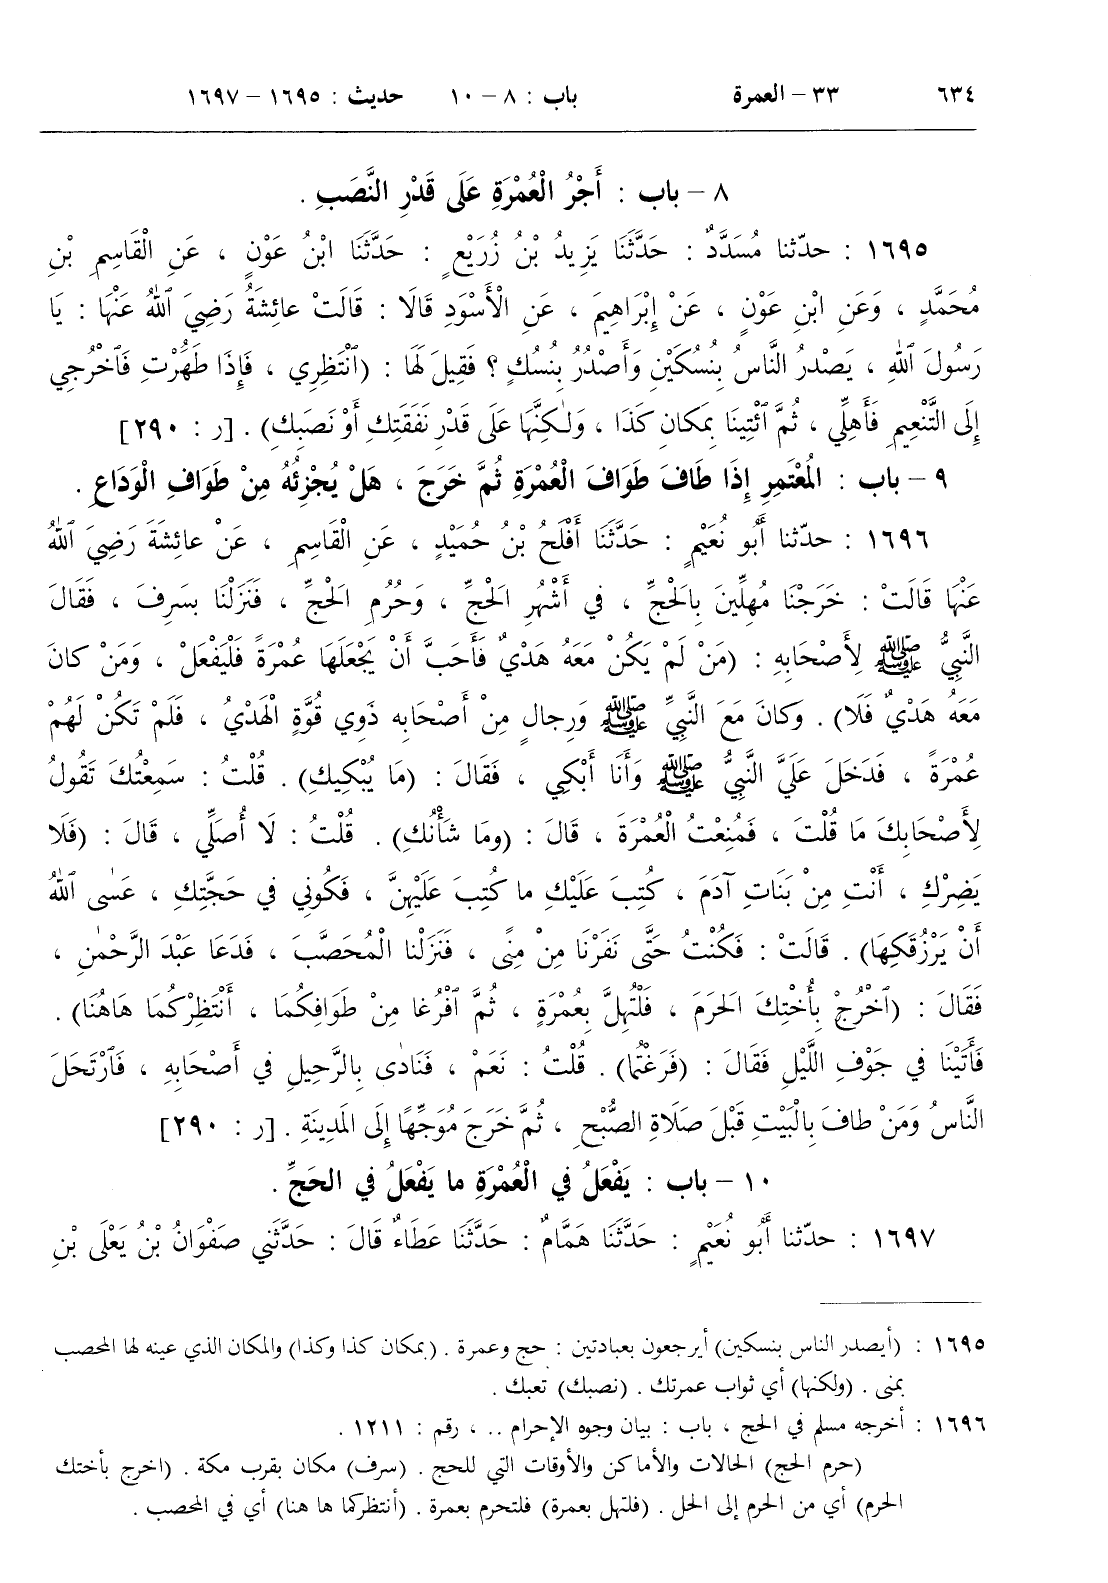 ٦٣٤ ٣٣ – العمرة باب : ٨ – ١٠ حديث : ١٦٩٥ – ١٦٩٧
٨ – باب : أَجْرُ الْعُمْرَةِ عَلَى قَدْرِ النَّصَبِ .
١٦٩٥ : حدّثنا مُسَدَّدٌ : حَدَّثَنَا يَزِيدُ بْنُ زُرَيْعٍ : حَدَّثَنَا ابْنُ عَوْنٍ ، عَنِ الْقَاسِمِ بْنِ
مُحَمَّدٍ ، وَعَنِ ابْنِ عَوْنٍ ، عَنْ إِبْرَاهِيمَ ، عَنِ الْأَسْوَدِ قَالَا : قَالَتْ عائِشَةُ رَضِيَ ٱللهُ عَنْهَا : يَا
رَسُولَ ٱللهِ ، يَصْدُرُ النَّاسُ بِنُسُكَيْنِ وَأَصْدُرُ بِنُسُكٍ ؟ فَقِيلَ لَهَا : (ٱنْتَظِرِي ، فَإِذَا طَهُرْتِ فَٱخْرُجِي
إِلَى التَّنْعِيمِ فَأَهِلِّي ، ثُمَّ ٱئْتِينَا بِمَكانِ كَذَا ، وَلٰكِنَّهَا عَلَى قَدْرِ نَفَقَتِكِ أَوْ نَصَبِكِ) . [ر : ٢٩٠]
٩ – باب : الْمُعْتَمِرِ إِذَا طَافَ طَوَافَ الْعُمْرَةِ ثُمَّ خَرَجَ ، هَلْ يُجْزِئُهُ مِنْ طَوَافِ الْوَدَاعِ .
١٦٩٦ : حدّثنا أَبُو نُعَيْمٍ : حَدَّثَنَا أَفْلَحُ بْنُ حُمَيْدٍ ، عَنِ الْقَاسِمِ ، عَنْ عائِشَةَ رَضِيَ ٱللهُ
عَنْهَا قَالَتْ : خَرَجْنَا مُهِلِّينَ بِالحَجِّ ، في أَشْهُرِ الحَجِّ ، وَحُرُمِ الحَجِّ ، فَنَزَلْنَا بِسَرِفَ ، فَقَالَ
النَّبِيُّ ﷺ لِأَصْحَابِهِ : (مَنْ لَمْ يَكُنْ مَعَهُ هَدْيٌ فَأَحَبَّ أَنْ يَجْعَلَهَا عُمْرَةً فَلْيَفْعَلْ ، وَمَنْ كانَ
مَعَهُ هَدْيٌ فَلَا) . وَكانَ مَعَ النَّبِيِّ ﷺ وَرِجالٍ مِنْ أَصْحَابِهِ ذَوِي قُوَّةٍ الْهَدْيُ ، فَلَمْ تَكُنْ لَهُمْ
عُمْرَةً ، فَدَخَلَ عَلَيَّ النَّبِيُّ ﷺ وَأَنَا أَبْكِي ، فَقَالَ : (مَا يُبْكِيكِ) . قُلْتُ : سَمِعْتُكَ تَقُولُ
لِأَصْحَابِكَ مَا قُلْتَ ، فَمُنِعْتُ الْعُمْرَةَ ، قَالَ : (وَمَا شَأْنُكِ) . قُلْتُ : لَا أُصَلِّي ، قَالَ : (فَلَا
يَضِرْكِ ، أَنْتِ مِنْ بَنَاتِ آدَمَ ، كُتِبَ عَلَيْكِ ما كُتِبَ عَلَيْهِنَّ ، فَكُونِي في حَجَّتِكِ ، عَسٰى ٱللهُ
أَنْ يَرْزُقَكِهَا) . قَالَتْ : فَكُنْتُ حَتَّى نَفَرْنَا مِنْ مِنًى ، فَنَزَلْنا الْمُحَصَّبَ ، فَدَعَا عَبْدَ الرَّحْمٰنِ ،
فَقَالَ : (ٱخْرُجْ بِأُخْتِكَ الحَرَمَ ، فَلْتُهِلَّ بِعُمْرَةٍ ، ثُمَّ ٱفْرُغَا مِنْ طَوَافِكُمَا ، أَنْتَظِرْكُمَا هَاهُنَا) .
فَأَتَيْنَا في جَوْفِ اللَّيْلِ فَقَالَ : (فَرَغْتُمَا) . قُلْتُ : نَعَمْ ، فَنَادٰى بِالرَّحِيلِ في أَصْحَابِهِ ، فَٱرْتَحَلَ
النَّاسُ وَمَنْ طافَ بِالْبَيْتِ قَبْلَ صَلَاةِ الصُّبْحِ ، ثُمَّ خَرَجَ مُوَجِّهًا إِلَى المَدِينَةِ . [ر : ٢٩٠]
١٠ – باب : يَفْعَلُ في الْعُمْرَةِ ما يَفْعَلُ في الحَجِّ .
١٦٩٧ : حدّثنا أَبُو نُعَيْمٍ : حَدَّثَنَا هَمَّامٌ : حَدَّثَنَا عَطَاءٌ قَالَ : حَدَّثَنِي صَفْوَانُ بْنُ يَعْلَى بْنِ
١٦٩٥ : (أيصدر الناس بنسكين) أيرجعون بعبادتين : حج وعمرة . (بمكان كذا وكذا) والمكان الذي عينه لها المحصب
بمنى . (ولكنها) أي ثواب عمرتك . (نصبك) تعبك .
١٦٩٦ : أخرجه مسلم في الحج ، باب : بيان وجوه الإحرام .. ، رقم : ١٢١١ .
(حرم الحج) الحالات والأماكن والأوقات التي للحج . (سرف) مكان بقرب مكة . (اخرج بأختك
الحرم) أي من الحرم إلى الحل . (فلتهل بعمرة) فلتحرم بعمرة . (أنتظركما ها هنا) أي في المحصب .